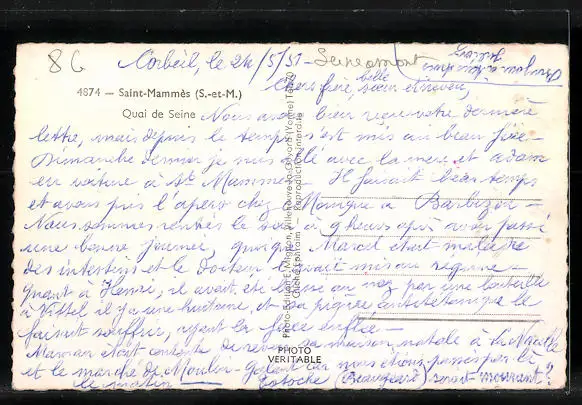 8 C
Corbeil, le 24/5/51 - Seine amont
4874 — Saint-Mammès (S.-et-M.)
Quai de Seine
Chers frère, belle soeur et neveu,
Nous avons bien reçu votre dernière
lettre, mais depuis le temps s'est mis au beau fixe -
Dimanche dernier je suis allé avec la mère et adam
en voiture à St Mammès Il faisait beau temps
et avons pris l'apéro chez Monique à Barbizon -
Nous sommes rentrés le soir à 9 heures après avoir passé
une bonne journée, quoique Marcel était malade
des intestins et le docteur l'avait mis au régime -
quant à Henri, il avait été blessé au nez par une bouteille
à Vittel il y a une huitaine, et sa piqûre antitétanique le
faisait souffrir, ayant la face enflée -
Maman était contente de revoir sa maison natale à la
et le marché de Moulin-Galant car nous étions passés par là
le matin Patoche (Beaugeard) serait mourant ?
Photo-Edition E. Mignon, Villeneuve-la-Guyard (Yonne)
Reproduction interdite
PHOTO
VERITABLE